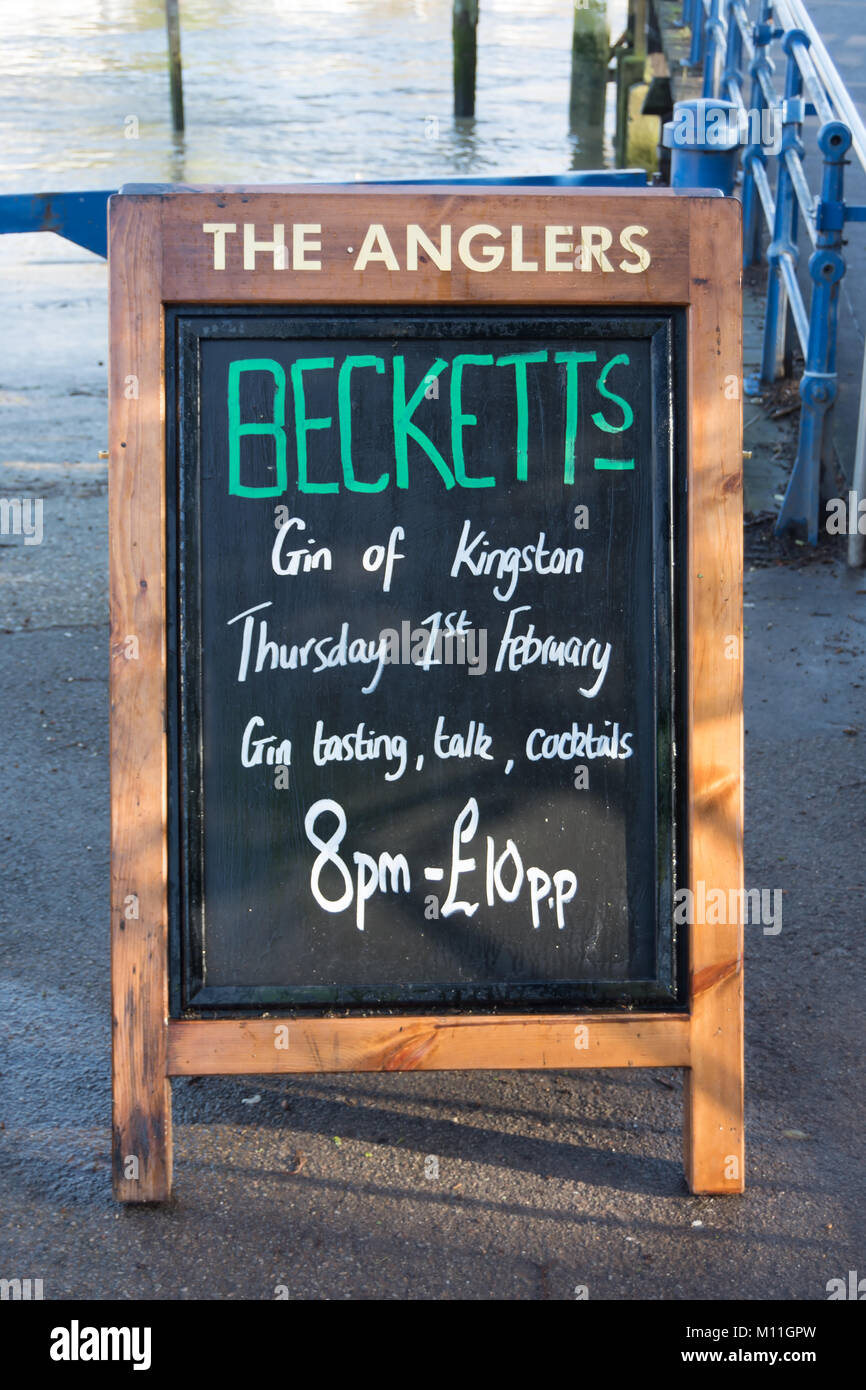 THE ANGLERS
BECKETTS
Gin of Kingston
Thursday 1st February
Gin tasting, talk, cocktails
8pm - £10 p.p
alamy
Image ID: M11GPW
www.alamy.com